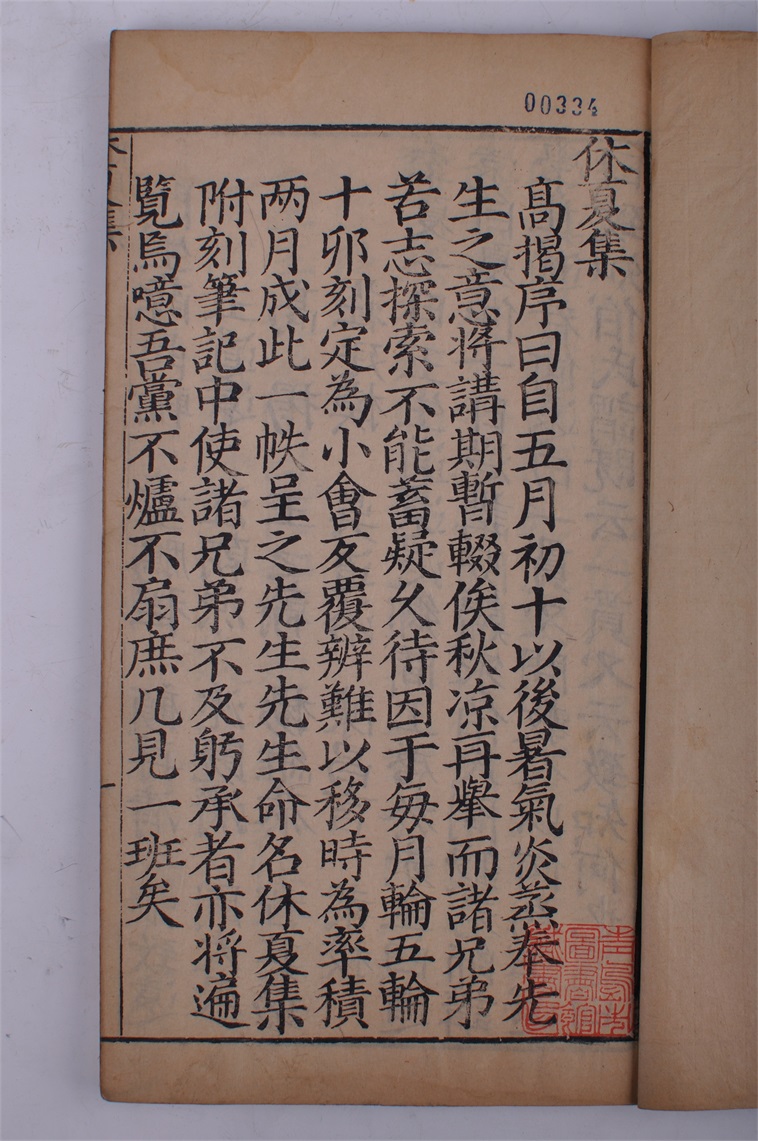 00334
休夏集
高揭序曰自五月初十以後暑氣炎蒸奉先
生之意将講期暫輟俟秋凉再舉而諸兄弟
苦志探索不能蓄疑久待因于每月輪五輪
十卯刻定為小會反覆辨難以移時為率積
两月成此一帙呈之先生先生命名休夏集
附刻筆記中使諸兄弟不及躬承者亦将遍
覽焉噫吾黨不爐不扇庶几見一班矣
休夏集
一